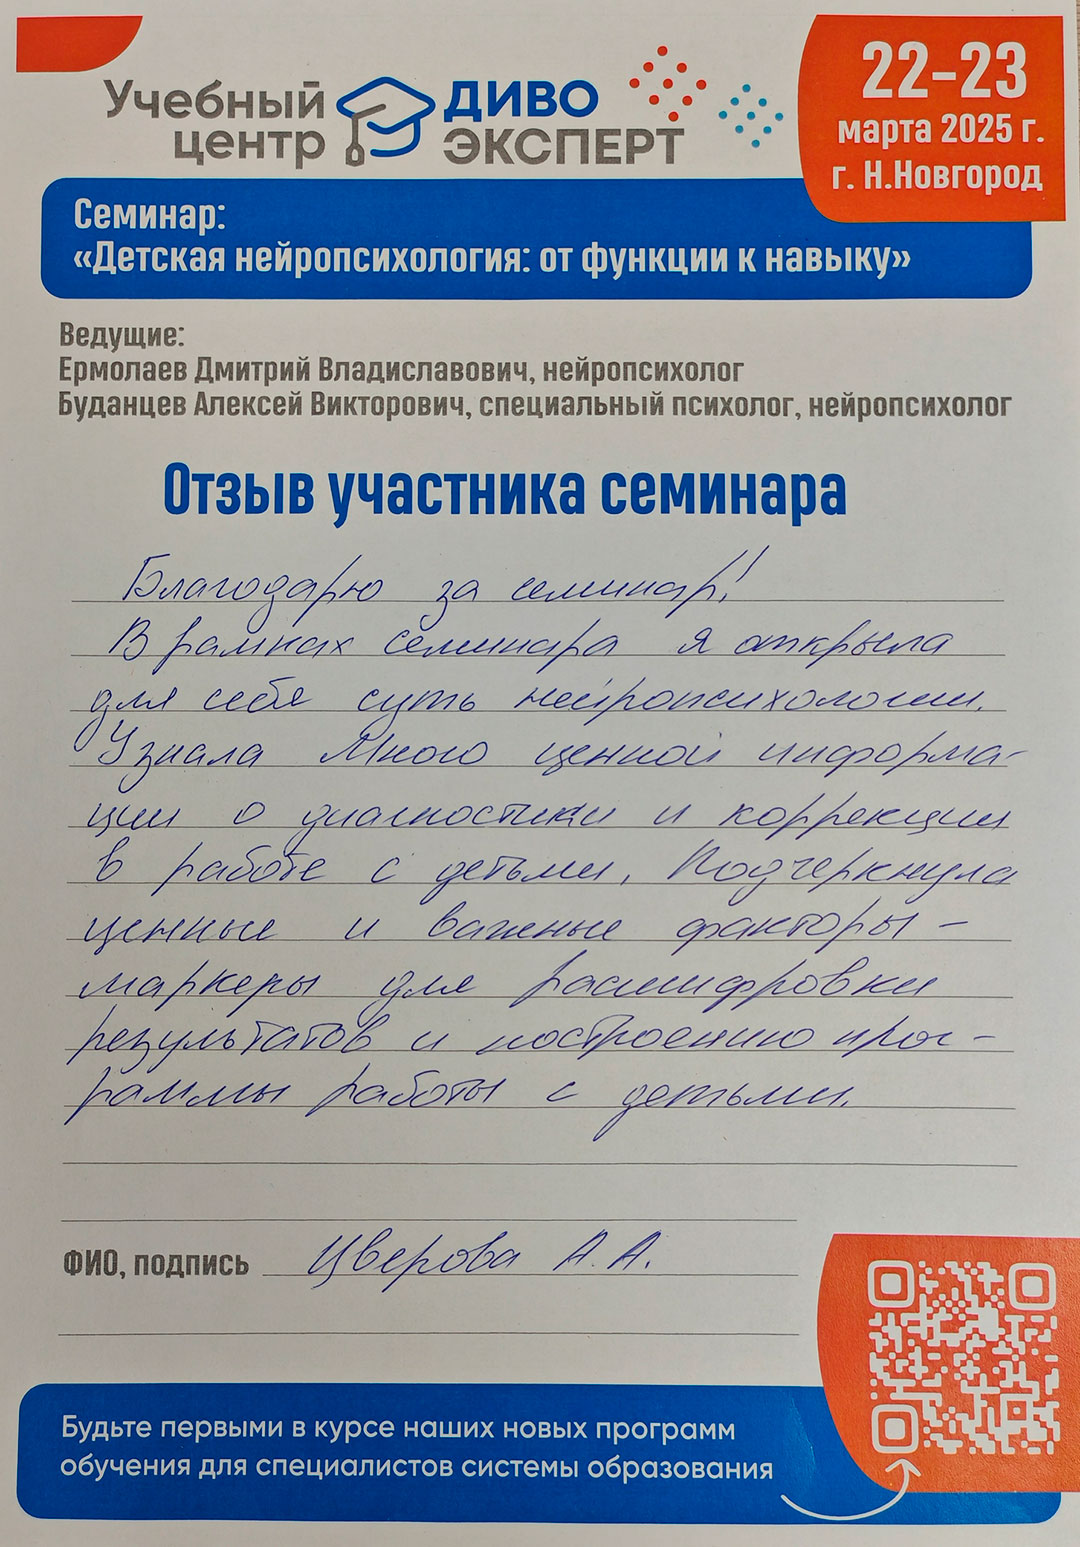 Учебный центр
ДИВО ЭКСПЕРТ
22-23
марта 2025 г.
г. Н.Новгород
Семинар:
«Детская нейропсихология: от функции к навыку»
Ведущие:
Ермолаев Дмитрий Владиславович, нейропсихолог
Буданцев Алексей Викторович, специальный психолог, нейропсихолог
Отзыв участника семинара
Благодарю за семинар!
В рамках семинара я открыла
для себя суть нейропсихологии.
Узнала много ценной информа-
ции о диагностики и коррекции
в работе с детьми. Подчеркнула
ценные и важные факторы -
маркеры для расшифровки
результатов и построению прог-
раммы работы с детьми.
ФИО, подпись Цверова А.А.
Будьте первыми в курсе наших новых программ
обучения для специалистов системы образования